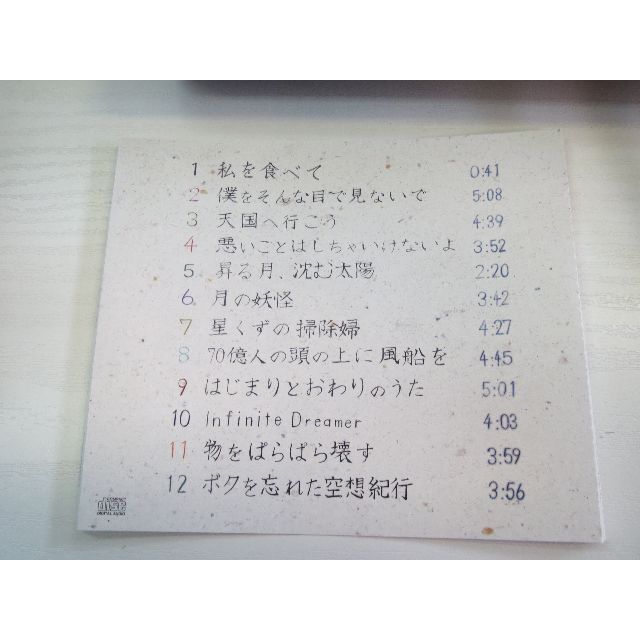 1 私を食べて 0:41
2 僕をそんな目で見ないで 5:08
3 天国へ行こう 4:39
4 悪いことはしちゃいけないよ 3:52
5 昇る月、沈む太陽 2:20
6 月の妖怪 3:42
7 星くずの掃除婦 4:27
8 70億人の頭の上に風船を 4:45
9 はじまりとおわりのうた 5:01
10 Infinite Dreamer 4:03
11 物をばらばら壊す 3:59
12 ボクを忘れた空想紀行 3:56
COMPACT
disc
DIGITAL AUDIO